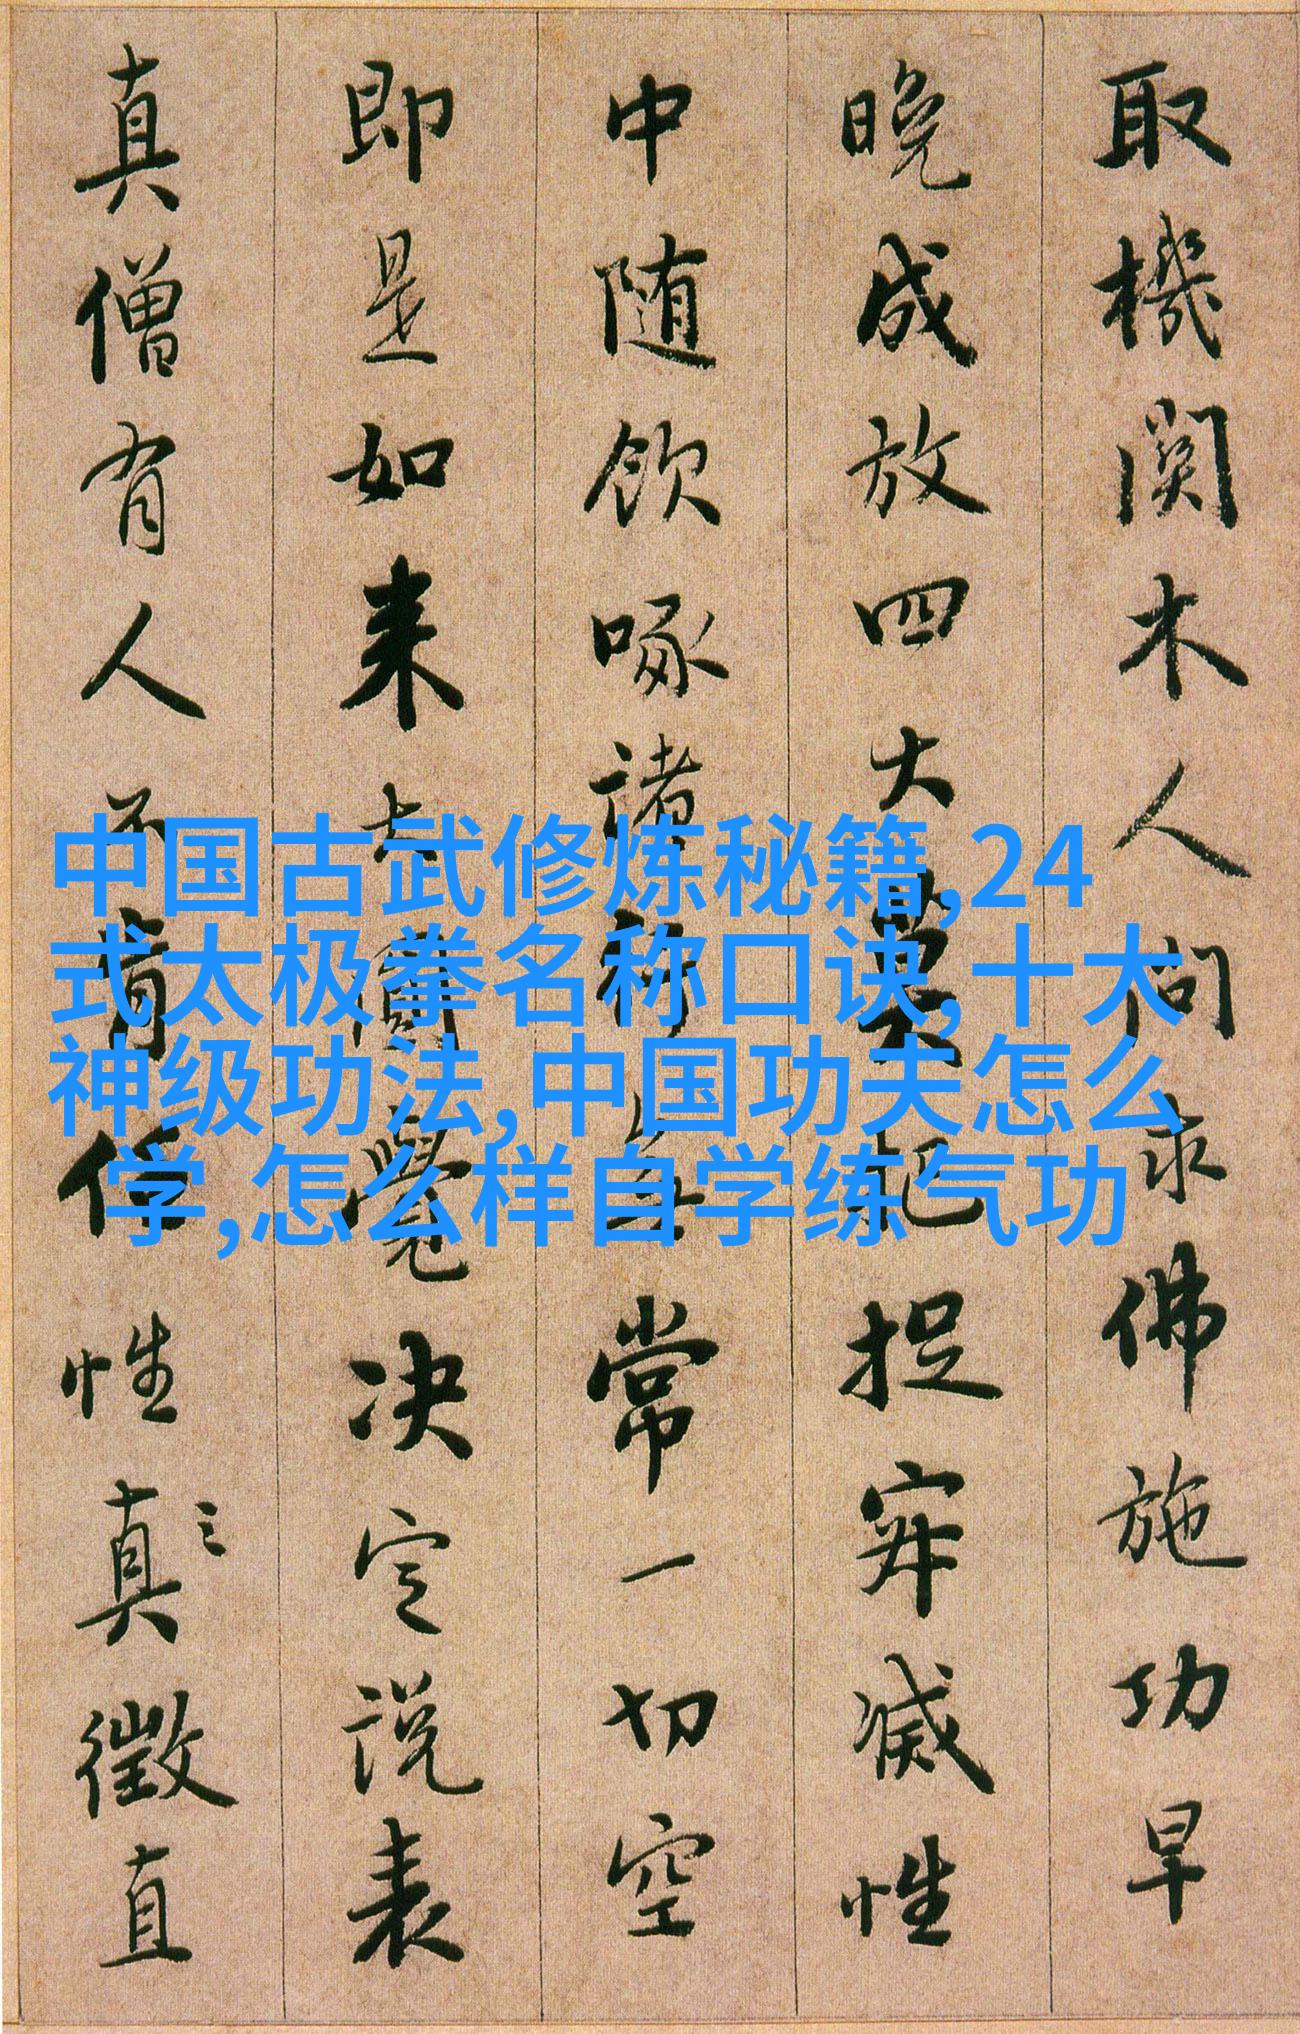 取機関木人問求佛施功早
晚成放四大莫把捉寂滅性
中随飲啄諸行無常一切空
即是如来大圓覺决定説表
真僧有人不肯任性真徵直
中国古武修炼秘籍,24
式太极拳名称口诀,十大
神级功法,中国功夫怎么
学,怎么样自学练气功